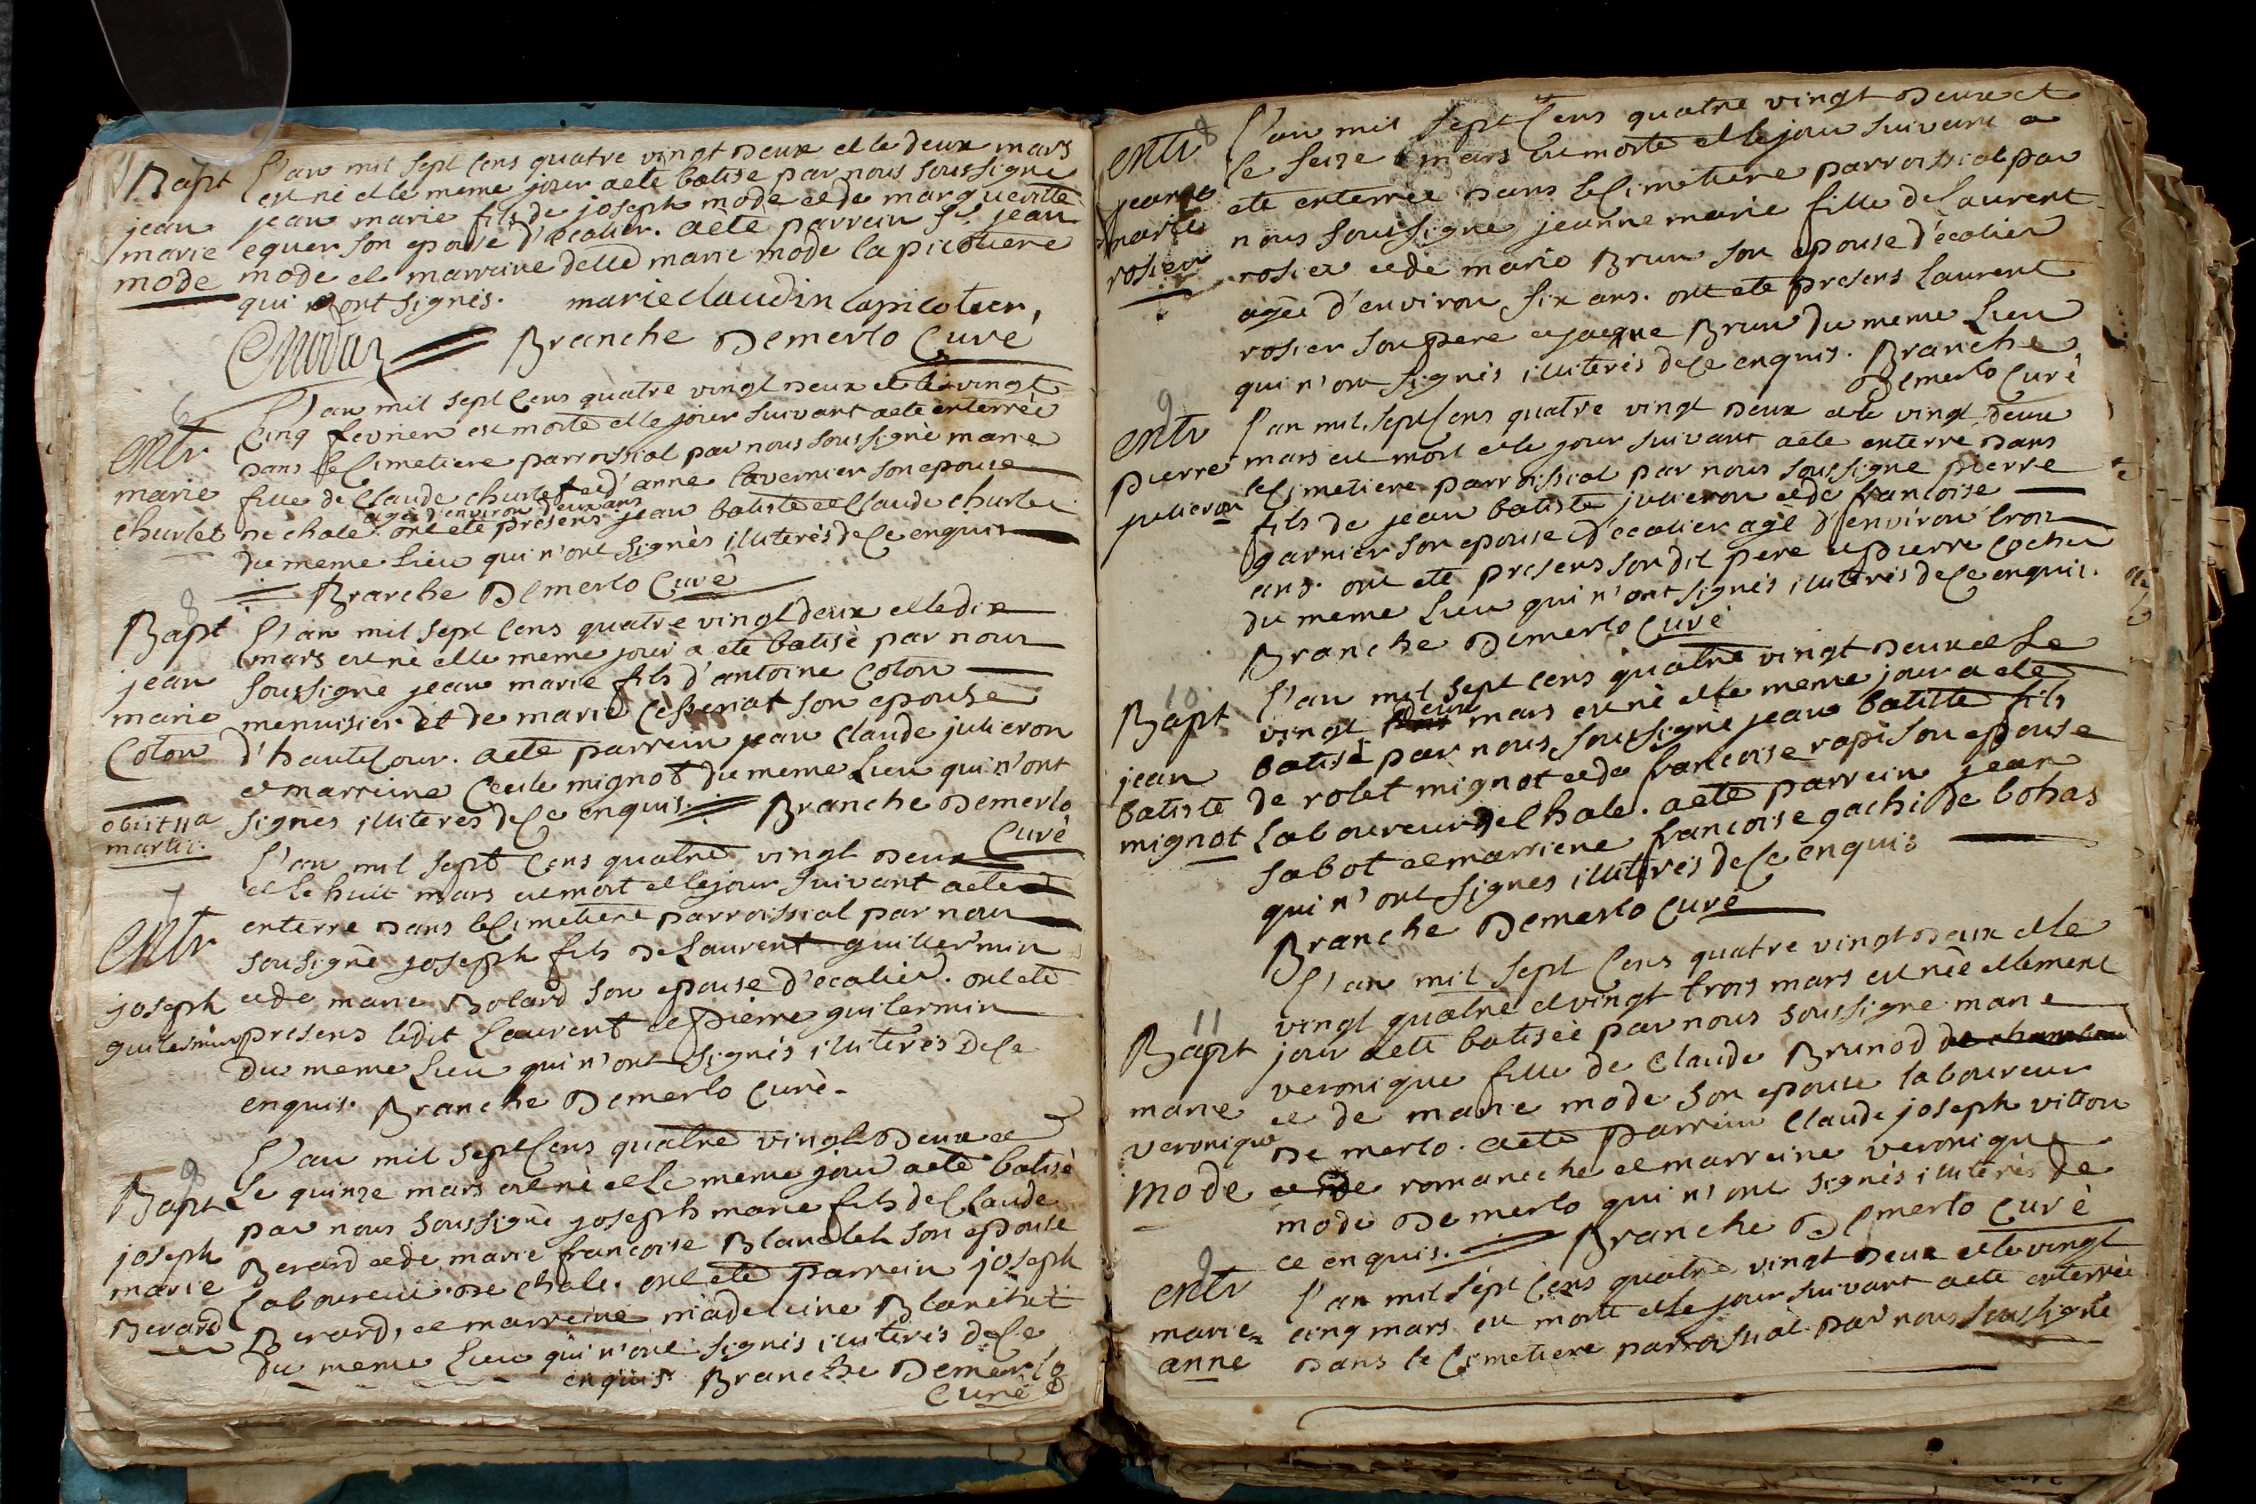 Bapt
jean
marie
mode
L'an mil sept cens quatre vingt deux et le deux mars
est né et le meme jour a eté batisé par nous soussigné
jean marie fils de joseph mode et de marguerite
equer son epouse d'ecolier. a eté parrein sr jean
mode et marreine delle marie mode lapicotiere
qui ont signés. marie claudin lapicotier,
Branche Demerlo Curé
6
entr
marie
churlet
L'an mil sept cens quatre vingt deux et le vingt
cinq fevrier est morte et le jour suivant a eté enterrée
dans le Cimetiere parroissial par nous soussigné marie
fille de Claude churlet et d'anne tavernier son epouse
agée d'environ deux ans
de chale. ont eté presens jean batiste et Claude churlet
du meme Lieu qui n'ont signés illiterés de ce enquis
Branche Demerlo Curé
8
Bapt
jean
marie
Coton
obiit 11a
martii.
L'an mil sept cens quatre vingt deux et le dix
mars est né et le meme jour a eté batisé par nous
soussigné jean marie fils d'antoine Coton
menuisier et de marie son epouse
d'hautecour. a eté parrein jean Claude julieron
et marreine Cecile mignot du meme Lieu qui n'ont
signés illiterés de ce enquis. Branche Demerlo
Curé
7
entr
joseph
guilermin
L'an mil sept cens quatre vingt deux
et le huit mars est mort et le jour suivant a eté
enterré dans le Cimetiere parroissial par nous
sousigné joseph fils de Laurent guillermin
et de marie Bolard son epouse d'ecolier. ont eté
presens ledit Laurent et pierre guilermin
du meme Lieu qui n'ont signés illiterés de ce
enquis. Branche Demerlo Curé.
9
Bapt
joseph
marie
Berard
L'an mil sept cens quatre vingt deux et
le quinze mars est né et le meme jour a eté batisé
par nous soussigné joseph marie fils de Claude
Berard et de marie francoise Blanchet son epouse
Laboureur de chale. ont eté parrein joseph
Berard, et marreine madeleine Blanchet
du meme Lieu qui n'ont signés illiterés de ce
enquis. Branche Demerlo
Curé
8
entr
jeanne
marie
rosier
L'an mil sept Cens quatre vingt deux et
le seize mars est morte et le jour suivant a
eté enterrée dans le Cimetiere parroissial par
nous soussigné jeanne marie fille de Laurent
rosier et de marie Brun son epouse d'ecolier
agée d'environ six ans. ont eté presens Laurent
rosier son pere et jacque Brun du meme Lieu
qui n'ont signés illiterés de ce enquis. Branche
Demerlo Curé
9
entr
pierre
julieron
L'an mil sept Cens quatre vingt deux et le vingt deux
mars est mort et le jour suivant a eté enterré dans
le Cimetiere parroissial par nous soussigné pierre
fils de jean batiste julieron et de francoise
garnier son epouse d'ecolier agé d'environ trois
ans. ont eté presens son dit pere et pierre Cochet
du meme Lieu qui n'ont signés illiterés de ce enquis.
Branche Demerlo Curé
10
Bapt
jean
batiste
mignot
L'an mil sept cens quatre vingt deux et le
vingt deux mars est né et le meme jour a eté
batisé par nous soussigné jean batiste fils
de robet mignot et de francoise rapi son epouse
Laboureur de Chale. a eté parrein jean
sabot et marriene francoise gachi de bohas
qui n'ont signés illiterés de ce enquis
Branche Demerlo Curé
11
Bapt
marie
veronique
mode
L'an mil sept Cens quatre vingt deux et le
vingt quatre et vingt trois mars est née et le meme
jour a eté batisée par nous soussigné marie
veronique fille de Claude Brunod
et de marie mode son epouse laboureur
de merlo. a eté parrein Claude joseph vitton
de romaneche et marreine veronique
mode de merlo qui n'ont signés illiterés de
ce enquis. Branche Demerlo Curé
9
entr
marie
anne
L'an mil sept Cens quatre vingt deux et le vingt
cinq mars est morte et le jour suivant a eté enterrée
dans le Cimetiere parroissial par nous soussigné